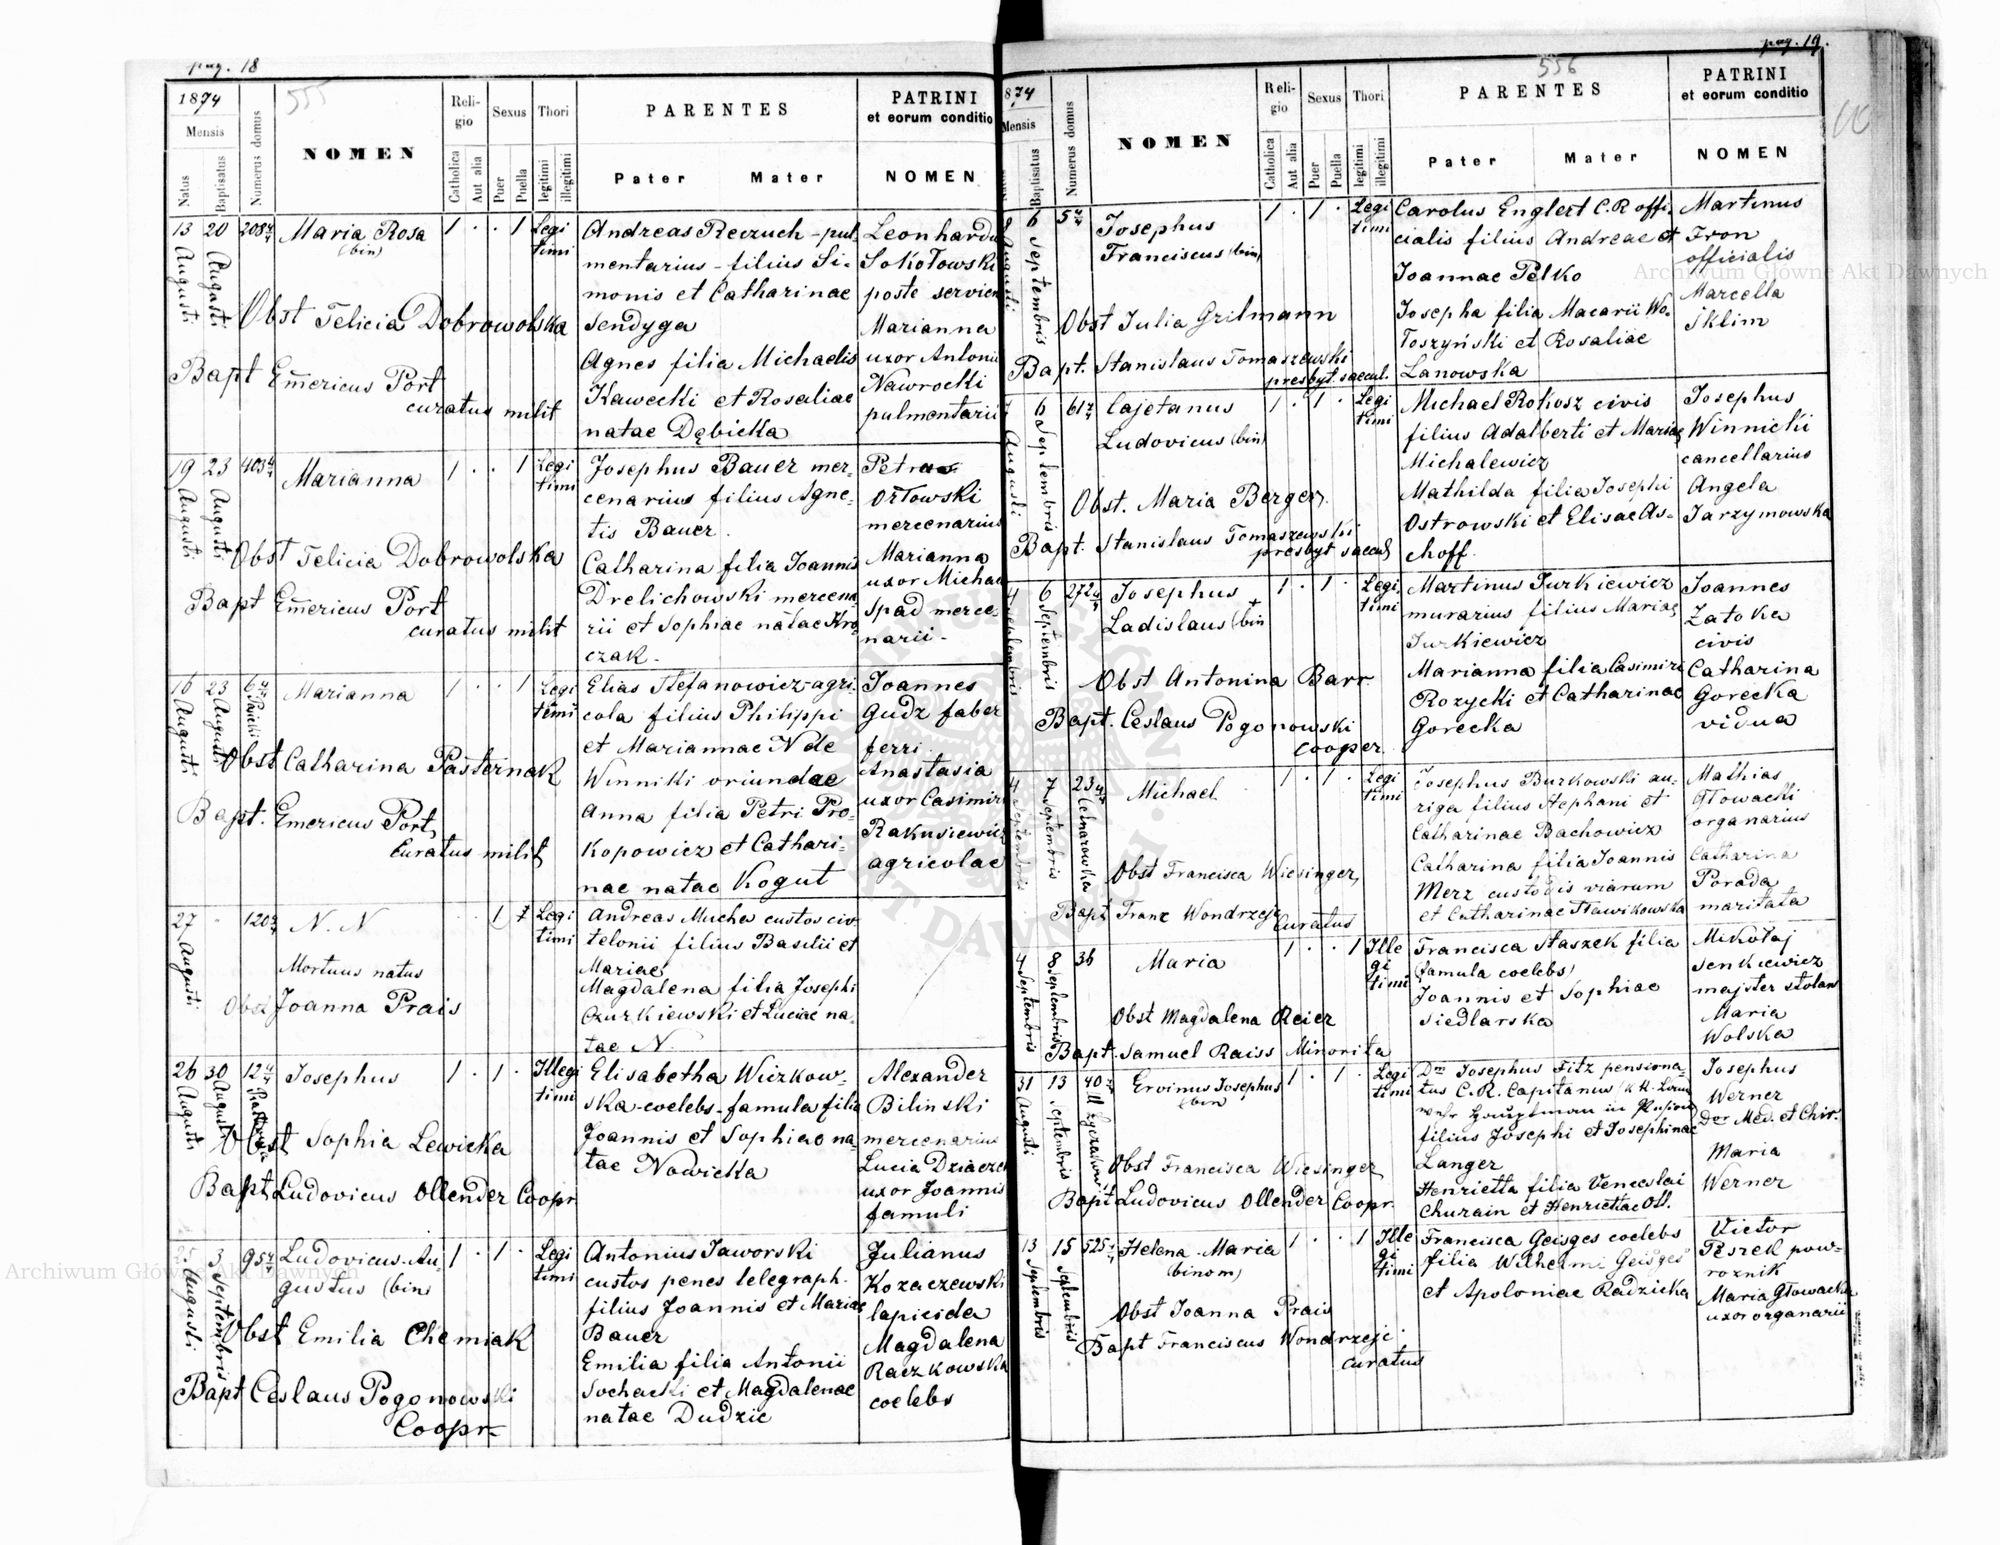 pag. 18
1874
555
Mensis
Natus
Baptisatus
Numerus domus
NOMEN
Religio
Catholica
Aut alia
Sexus
Puer
Puella
Thori
legitimi
illegitimi
PARENTES
Pater Mater
PATRINI
et eorum conditio
NOMEN
13 Augusti 20 Augusti 208 2/4
Maria Rosa
(bin)
1 . . 1 Legi
timi
Obst Felicia Dobrowolska
Bapt Emericus Port
curatus milit
Andreas Reczuch - pul-
mentarius - filius Si-
monis et Catharinae
Sendyga
Agnes filia Michaelis
Kawecki et Rosaliae
natae Dębicka
Leonhardus
Sokołowski
poste servien
Marianna
uxor Antonii
Nawrocki
pulmentarii
19 Augusti 23 Augusti 403 4/4
Marianna
1 . . 1 Legi
timi
Obst Felicia Dobrowolska
Bapt Emericus Port
curatus milit
Josephus Bauer mer-
cenarius filius Agne-
tis Bauer.
Catharina filia Joannis
Drelichowski mercena
rii et Sophiae natae Kro-
czak -
Petrus
Orłowski
mercenarius
Marianna
uxor Michae
Spad merce
narii -
16 Augusti 23 Augusti 6 4/4
Marianna
1 . . 1 Legi
timi
Obst Catharina Pasternak
Bapt. Emericus Port,
Curatus milit
Elias Stefanowicz - agri-
cola filius Philippi
et Mariannae N de
Winniki oriundae
Anna filia Petri Pro-
kopowicz et Cathari-
nae natae Kogut
Joannes
Gudz faber
ferri
Anastasia
uxor Casimiri
Rakusiewicz
agricolae
27 Augusti . 120 3/4
N. N
. . 1 Legi
timi
Mortuus natus
Obst Joanna Prais
Andreas Mucha custos civ
telonii filius Basilii et
Mariae
Magdalena filia Josephi
Czurkiewski et Luciae na-
tae N.
26 Augusti 30 Augusti 12 4/4
Josephus
1 . 1 . Illegi
timi
Obst Sophia Lewicka
Bapt Ludovicus Ollender Coopr
Elisabetha Wiczkow-
ska - coelebs - famula filia
Joannis et Sophiae na-
tae Nowicka
Alexander
Bilinski
mercenarius
Lucia Dziaczek
uxor Joannis
famuli
25 Augusti 3 Septembris 95 2/4
Ludovicus - Au-
gustus (bin)
1 . 1 . Legi
timi
Obst Emilia Chemiak
Bapt Ceslaus Pogonowski
Coopr -
Antonius Jaworski
custos penes telegraph.
filius Joannis et Mariae
Bauer
Emilia filia Antonii
Sochacki et Magdalenae
natae Dudzic
Julianus
Kozaczewski
lapicida
Magdalena
Raczkowska
coelebs
pag. 19.
874
556
Mensis
Baptisatus
Numerus domus
NOMEN
Religio
Catholica
Aut alia
Sexus
Puer
Puella
Thori
legitimi
illegitimi
PARENTES
Pater Mater
PATRINI
et eorum conditio
NOMEN
8 Augusti 6 Septembris
Josephus
Franciscus (bin)
1 . 1 . Legi
timi
Obst Julia Grilmann
Bapt. Stanislaus Tomaszewski
presbyt saecul.
Carolus Englert C.R. offi-
cialis filius Andreae et
Joannae Pelko
Josepha filia Macarii Wo-
łoszyński et Rosaliae
Lanowska
Martinus
Iron
officialis
Marcella
Sklim
Augusti 6 Septembris 61 2/4
Cajetanus
Ludovicus (bin)
1 . 1 . Legi
timi
Obst. Maria Berger,
Bapt. Stanislaus Tomaszewski
presbyt saecul
Michael Rokosz civis
filius Adalberti et Mariae
Michalewicz
Mathilda filia Josephi
Ostrowski et Elisae As-
choff.
Josephus
Winnicki
cancellarius
Angela
Jarzymowska
4 Septembris 6 Septembris 272 4/4
Josephus +
Ladislaus (bin
1 . 1 . Legi
timi
Obst Antonina Barr
Bapt. Ceslaus Pogonowski
cooper.
Martinus Jurkiewicz
murarius filius Mariae
Jurkiewicz
Marianna filia Casimiri
Rozycki et Catharinae
Gorecka
Joannes
Zatoka
civis
Catharina
Gorecka
vidua
4 Septembris 7 Septembris 23 4/4 Celnarowka
Michael
1 . 1 . Legi
timi
Obst Francisca Wiesinger,
Bapt Franc Wondrzejc
Curatus
Josephus Burkowski au-
riga filius Stephani et
Catharinae Bachowicz
Catharina filia Joannis
Merz custodis viarum
et Catharinae Sławikowska
Mathias
Głowacki
organarius
Catharina
Porada
maritata
4 Septembris 8 Septembris 36
Maria
1 . . 1 Ille
gi
timi
Obst Magdalena Reier
Bapt. Samuel Raiss Minorita
Francisca Staszek filia
(famula coelebs)
Joannis et Sophiae
Siedlarska
Mikołaj
Senkiewicz
majster stolars
Maria
Wolska
31 Augusti 13 Septembris 40 2/4
Ervinus Josephus
(bin
1 . 1 . Legi
timi
Obst Francisca Wiesinger
Bapt Ludovicus Ollender Coopr.
Dm Josephus Fitz pensiona-
tus C.R. Capitanus
filius Josephi et Josephinae
Langer
Henrietta filia Venceslai
Churain et Henriettae Ott.
Josephus
Werner
Dor Med. et Chir.
Maria
Werner
13 Septembris 15 Septembris 525 2/4
Helena - Maria
binom)
1 . . 1 Ille
gi
timi
Obst Joanna Prais
Bapt Franciscus Wondrzejc.
curatus
Francisca Geisges coelebs
filia Wilhelmi Geisges
et Apoloniae Radzicka
Victor
Peszek pow-
roznik
Maria Głowacka
uxor organarii
Archiwum Główne Akt Dawnych
Archiwum Główne Akt Dawnych